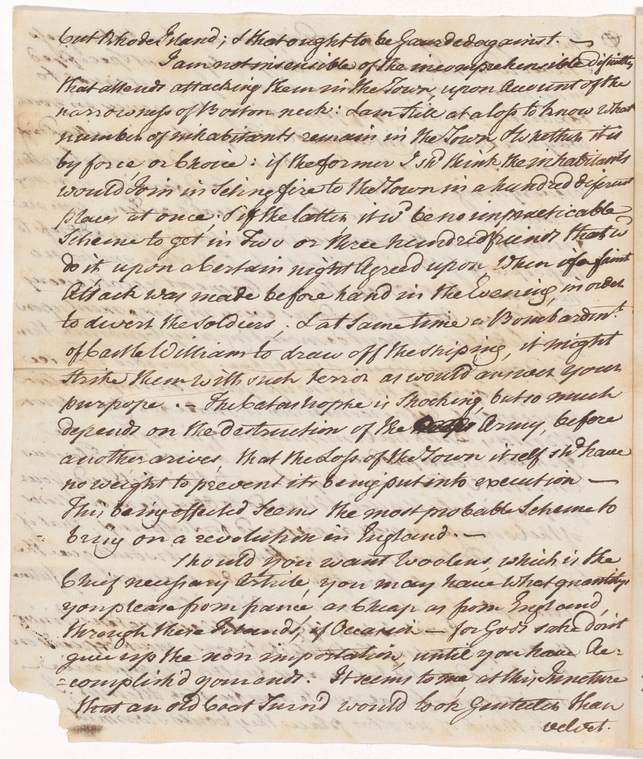 but Rhode Island; & that ought to be Gaurded against. —
I am not insensible of the incomprehencible difficulty
that attends attacking them in the Town upon account of the
narrowness of Boston neck: I am still at a loss to know what
number of inhabitants remain in the Town & whether it is
by force, or Choice: if the former I shd think, the inhabitants
would Join in seting fire to the Town in a hundred diferent
places at once; & if the latter, it wd be no impracticable
Scheme to get in Two or three hundred friends that wd
do it, upon a Certain night Agreed upon, When a faint
Attack was made before hand in the Evening, in order
to divert the Soldiers; & at same time a Bombardmt
of Castle William to draw off the shiping, it might
strike them with such terror as would answer your
purpose. — The Catastrophe is Shocking, but so much
depends on the destruction of the Army, before
another arives, that the Loss of the Town itself shd have
no weight to prevent its being put into execution —
This being effected Seems the most probable Scheme to
bring on a revolution in England. —
Should you want Woolens, which is the
Chief necessary Article, you may have What quantity
you please from france, as Cheap as from England,
through these Islands, if Occasion — for Gods sake don't
give up the non importation, until you have Ac=
=complish'd your ends. It seems to me at this Juncture
that an old Coat Turn'd would look Genteeler than
velvet.